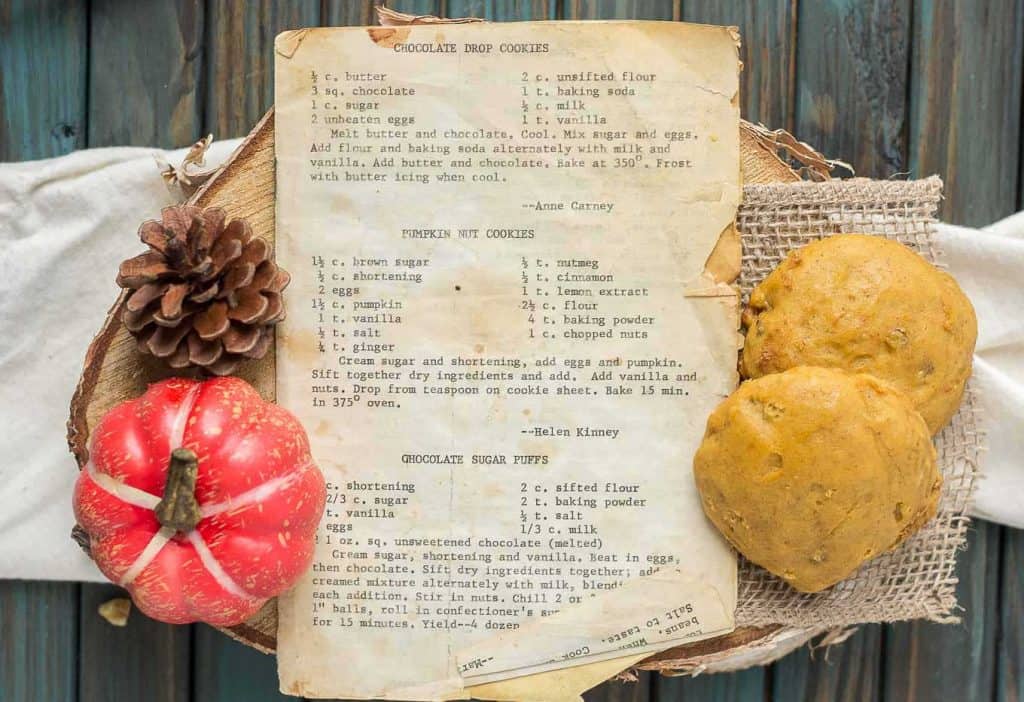 CHOCOLATE DROP COOKIES
½ c. butter 2 c. unsifted flour
3 sq. chocolate 1 t. baking soda
1 c. sugar ½ c. milk
2 unbeaten eggs 1 t. vanilla
Melt butter and chocolate. Cool. Mix sugar and eggs.
Add flour and baking soda alternately with milk and
vanilla. Add butter and chocolate. Bake at 350°. Frost
with butter icing when cool.
--Anne Carney
PUMPKIN NUT COOKIES
1½ c. brown sugar ½ t. nutmeg
½ c. shortening ½ t. cinnamon
2 eggs 1 t. lemon extract
1½ c. pumpkin 2½ c. flour
1 t. vanilla 4 t. baking powder
½ t. salt 1 c. chopped nuts
¼ t. ginger
Cream sugar and shortening, add eggs and pumpkin.
Sift together dry ingredients and add. Add vanilla and
nuts. Drop from teaspoon on cookie sheet. Bake 15 min.
in 375° oven.
--Helen Kinney
CHOCOLATE SUGAR PUFFS
c. shortening 2 c. sifted flour
2/3 c. sugar 2 t. baking powder
t. vanilla ½ t. salt
eggs 1/3 c. milk
1 oz. sq. unsweetened chocolate (melted)
Cream sugar, shortening and vanilla. Beat in eggs,
then chocolate. Sift dry ingredients together; add
creamed mixture alternately with milk,
each addition. Stir in nuts. Chill 2 or
1" balls, roll in confectioner's
for 15 minutes. Yield--4 dozen
beans. When
Salt to taste. Cook